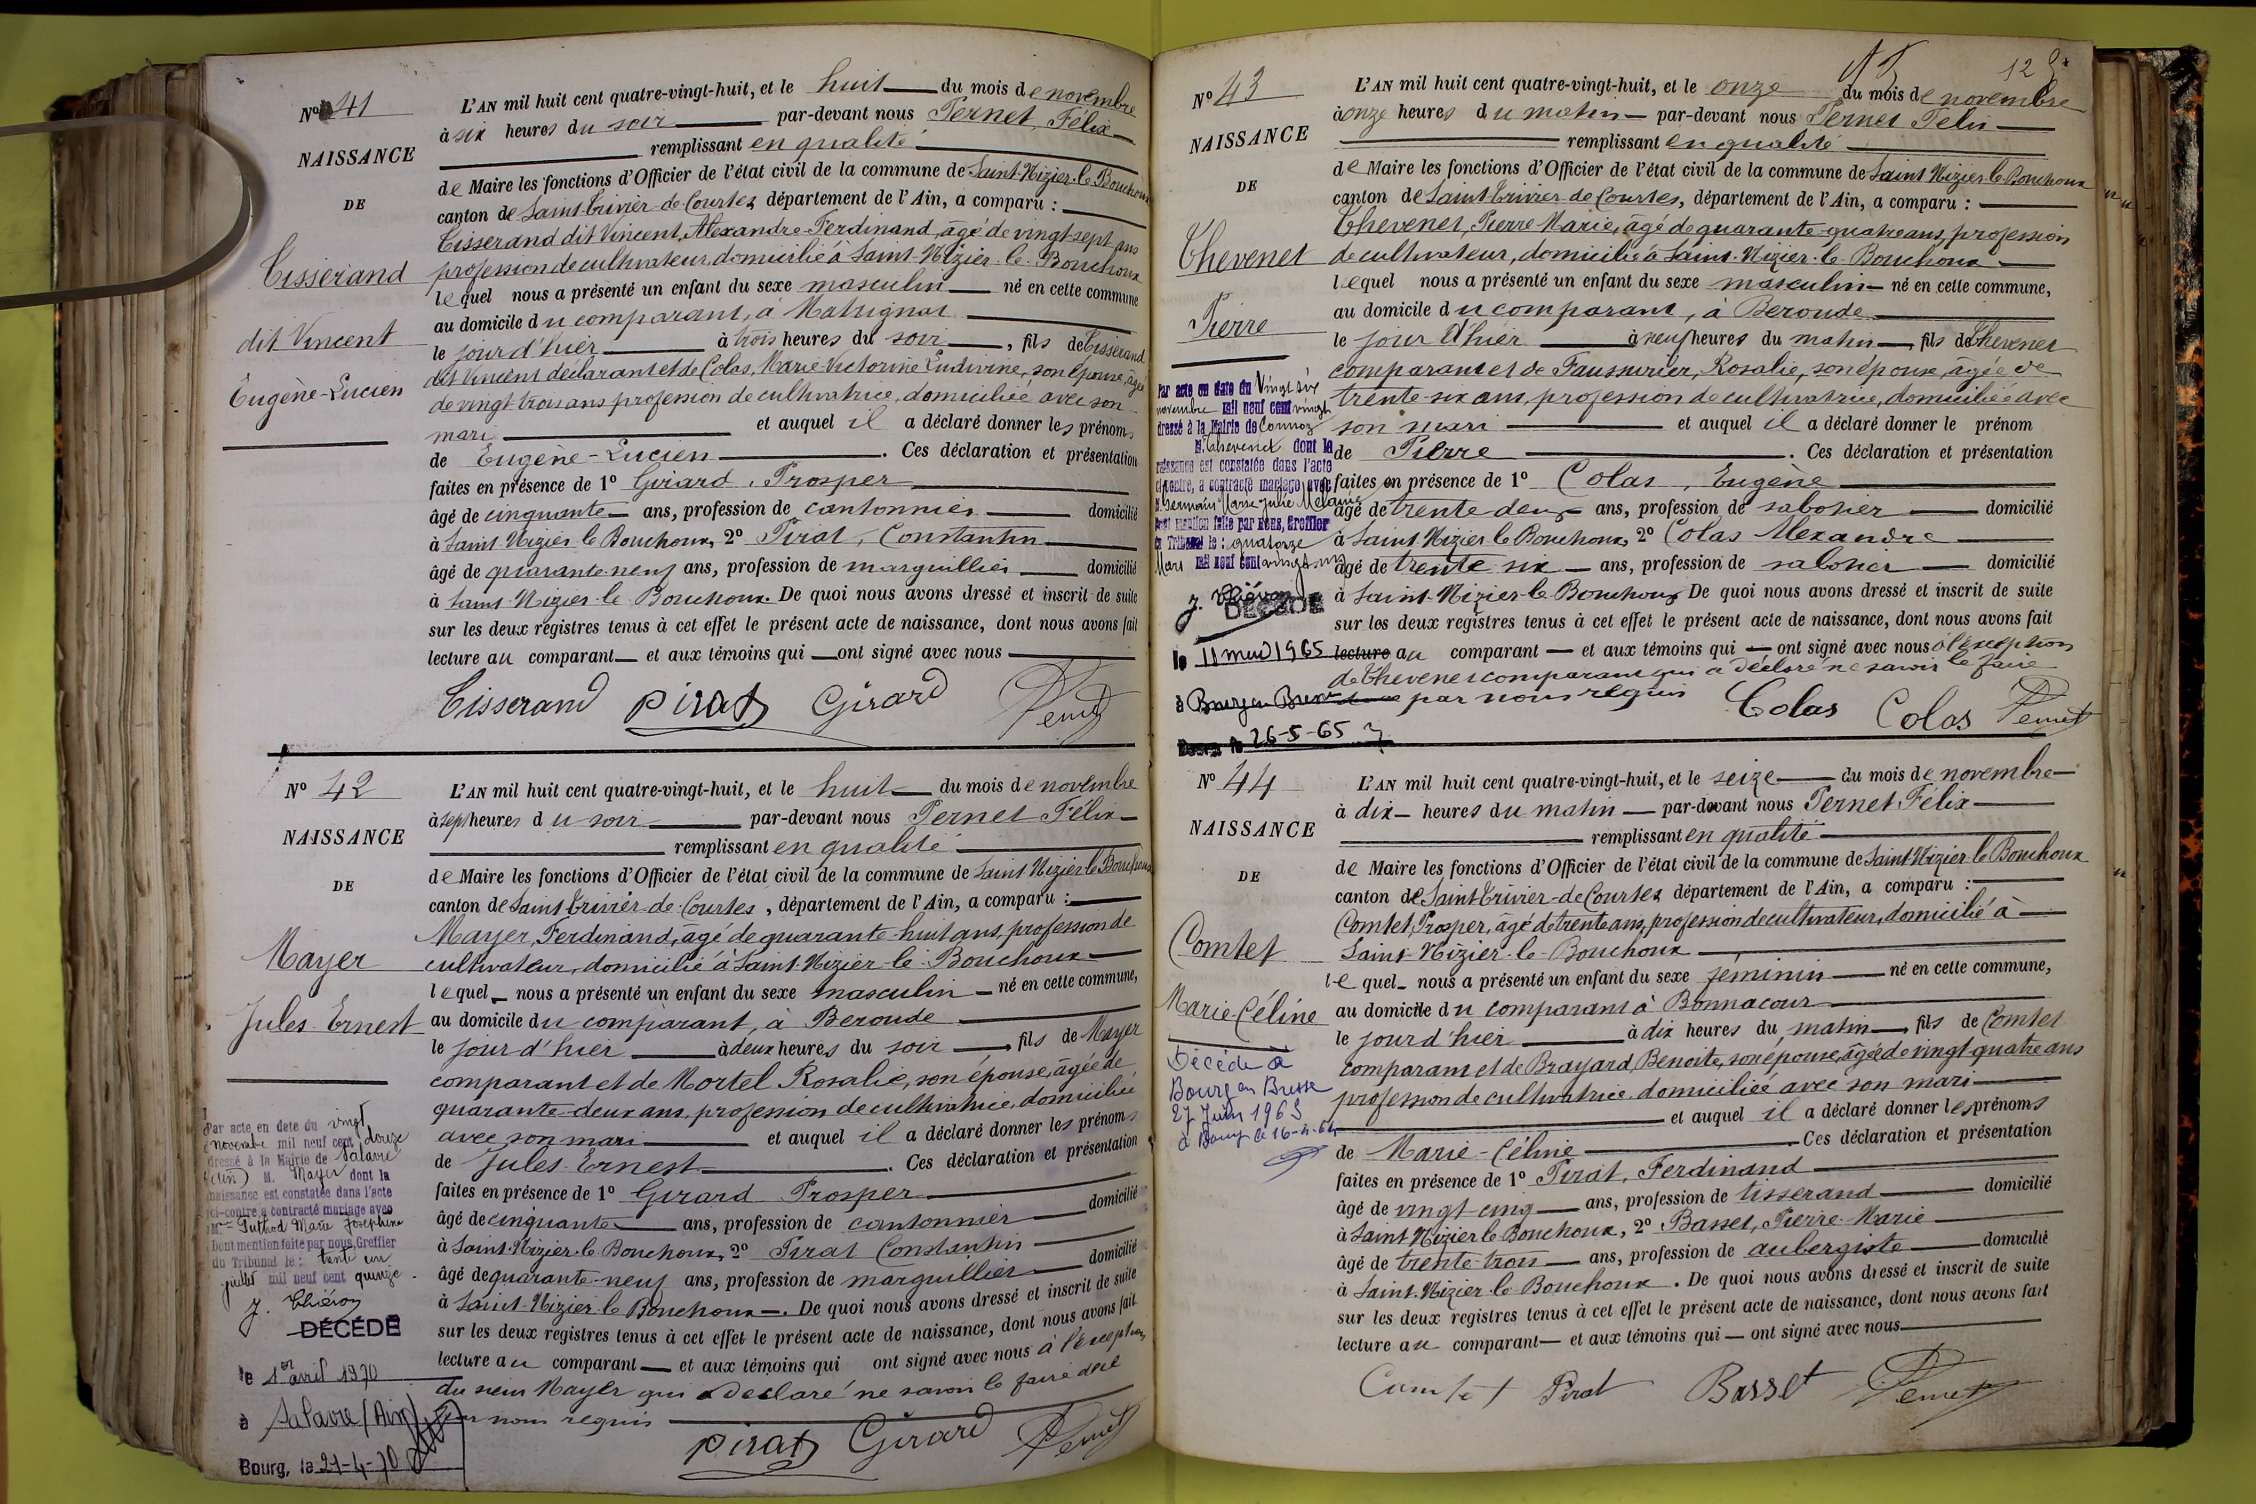 No 41
NAISSANCE
DE
Tisserand
dit Vincent
Eugène-Lucien
L'AN mil huit cent quatre-vingt-huit, et le huit du mois de novembre
à six heures du soir par-devant nous Pernet, Félix
remplissant en qualité
de Maire les fonctions d'Officier de l'état civil de la commune de Saint-Nizier-le-Bouchoux
canton de Saint-Trivier-de-Courtes, département de l'Ain, a comparu :
Tisserand dit Vincent, Alexandre-Ferdinand, âgé de vingt-sept ans
profession de cultivateur, domicilié à Saint-Nizier-le-Bouchoux
lequel nous a présenté un enfant du sexe masculin né en cette commune
au domicile du comparant, à Matrignat
le jour d'hier à trois heures du soir, fils de Tisserand
dit Vincent déclarant et de Colas, Marie-Victorine Ludivine, son épouse, âgée
de vingt-trois ans profession de cultivatrice, domiciliée avec son
mari et auquel il a déclaré donner les prénoms
de Eugène-Lucien. Ces déclaration et présentation
faites en présence de 1º Girard, Prosper
âgé de cinquante ans, profession de cantonnier domicilié
à Saint-Nizier le Bouchoux, 2º Pirat, Constantin
âgé de quarante-neuf ans, profession de marguillier domicilié
à Saint-Nizier-le Bouchoux. De quoi nous avons dressé et inscrit de suite
sur les deux registres tenus à cet effet le présent acte de naissance, dont nous avons fait
lecture au comparant et aux témoins qui ont signé avec nous
Tisserand Pirat Girard Pernet
No 42
NAISSANCE
DE
Mayer
Jules-Ernest
L'AN mil huit cent quatre-vingt-huit, et le huit du mois de novembre
à sept heures du soir par-devant nous Pernet Félix
remplissant en qualité
de Maire les fonctions d'Officier de l'état civil de la commune de Saint Nizier le Bouchoux
canton de Saint Trivier-de-Courtes, département de l'Ain, a comparu :
Mayer, Ferdinand, âgé de quarante-huit ans, profession de
cultivateur, domicilié à Saint-Nizier-le-Bouchoux
lequel nous a présenté un enfant du sexe masculin né en cette commune,
au domicile du comparant, à Beroude
le jour d'hier à deux heures du soir, fils de Mayer
comparant et de Mortel Rosalie, son épouse, âgée de
quarante-deux ans, profession de cultivatrice, domiciliée
avec son mari et auquel il a déclaré donner les prénoms
de Jules-Ernest. Ces déclaration et présentation
faites en présence de 1º Girard Prosper
âgé de cinquante ans, profession de cantonnier domicilié
à Saint-Nizier-le Bouchoux, 2º Pirat Constantin
âgé de quarante-neuf ans, profession de marguillier domicilié
à Saint-Nizier-le Bouchoux. De quoi nous avons dressé et inscrit de suite
sur les deux registres tenus à cet effet le présent acte de naissance, dont nous avons fait
lecture au comparant et aux témoins qui ont signé avec nous à l'exception
du sieur Mayer qui a déclaré ne savoir le faire
nous requis
Pirat Girard Pernet
Par acte en date du vingt
novembre mil neuf cent douze
dressé à la Mairie de Salavre
(Ain) M. Mayer dont la
naissance est constatée dans l'acte
ci-contre a contracté mariage avec
Mlle Puthod Marie Joséphine
Dont mention faite par nous, Greffier
du Tribunal le : trente un
juillet mil neuf cent quinze.
DÉCÉDÉ
le 1er avril 1970
à Salavre (Ain)
Bourg, le 21-4-70
128
No 43
NAISSANCE
DE
Thevenet
Pierre
L'AN mil huit cent quatre-vingt-huit, et le onze du mois de novembre
à onze heures du matin par-devant nous Pernet Félix
remplissant en qualité
de Maire les fonctions d'Officier de l'état civil de la commune de Saint Nizier-le-Bouchoux
canton de Saint-Trivier-de-Courtes, département de l'Ain, a comparu :
Thevenet, Pierre-Marie, âgé de quarante-quatre ans, profession
de cultivateur, domicilié à Saint-Nizier-le-Bouchoux
lequel nous a présenté un enfant du sexe masculin né en cette commune,
au domicile du comparant, à Beroude
le jour d'hier à neuf heures du matin, fils de Thevenet
comparant et de Faussurier, Rosalie, son épouse, âgée de
trente-six ans, profession de cultivatrice, domiciliée avec
son mari et auquel il a déclaré donner le prénom
de Pierre. Ces déclaration et présentation
faites en présence de 1º Colas, Eugène
âgé de trente deux ans, profession de sabotier domicilié
à Saint Nizier le Bouchoux, 2º Colas Alexandre
âgé de trente six ans, profession de sabotier domicilié
à Saint-Nizier-le-Bouchoux De quoi nous avons dressé et inscrit de suite
sur les deux registres tenus à cet effet le présent acte de naissance, dont nous avons fait
lecture au comparant et aux témoins qui ont signé avec nous à l'exception
de Thevenet comparant qui a déclaré ne savoir le faire
par nous requis
Colas Colas Pernet
Par acte en date du Vingt six
novembre mil neuf cent vingt
dressé à la Mairie de
M. Thevenet dont la
naissance est constatée dans l'acte
ci-contre, a contracté mariage avec
Germain Marie Julie Mélanie
Dont mention faite par nous, Greffier
du Tribunal le : quatorze
Mars mil neuf cent vingt
DÉCÉDÉ
le 11 mai 1965
à Bourg en Bresse
26-5-65
No 44
NAISSANCE
DE
Comtet
Marie-Céline
L'AN mil huit cent quatre-vingt-huit, et le seize du mois de novembre
à dix heures du matin par-devant nous Pernet Félix
remplissant en qualité
de Maire les fonctions d'Officier de l'état civil de la commune de Saint-Nizier-le Bouchoux
canton de Saint-Trivier-de-Courtes département de l'Ain, a comparu :
Comtet, Prosper, âgé de trente ans, profession de cultivateur, domicilié à
Saint-Nizier-le-Bouchoux
lequel nous a présenté un enfant du sexe féminin né en cette commune,
au domicile du comparant à Bonnacour
le jour d'hier à dix heures du matin, fils de Comtet
comparant et de Brayard Benoite, son épouse, âgée de vingt quatre ans
profession de cultivatrice, domiciliée avec son mari
et auquel il a déclaré donner les prénoms
de Marie-Céline. Ces déclaration et présentation
faites en présence de 1º Pirat, Ferdinand
âgé de vingt-cinq ans, profession de tisserand domicilié
à Saint Nizier le Bouchoux, 2º Basset, Pierre-Marie
âgé de trente-trois ans, profession de aubergiste domicilié
à Saint-Nizier-le-Bouchoux. De quoi nous avons dressé et inscrit de suite
sur les deux registres tenus à cet effet le présent acte de naissance, dont nous avons fait
lecture au comparant et aux témoins qui ont signé avec nous
Comtet Pirat Basset Pernet
Décédée à
Bourg en Bresse
27 Juin 1963